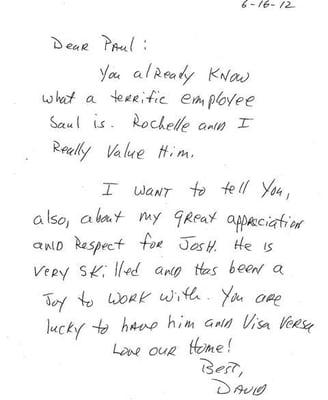 6-16-12
Dear Paul:
You already know
what a terrific employee
Saul is. Rochelle and I
Really value Him.
I want to tell you,
also, about my great appreciation
and Respect for Josh. He is
very skilled and has been a
Joy to work with. You are
lucky to have him and Visa Versa
Love our Home!
Best,
David